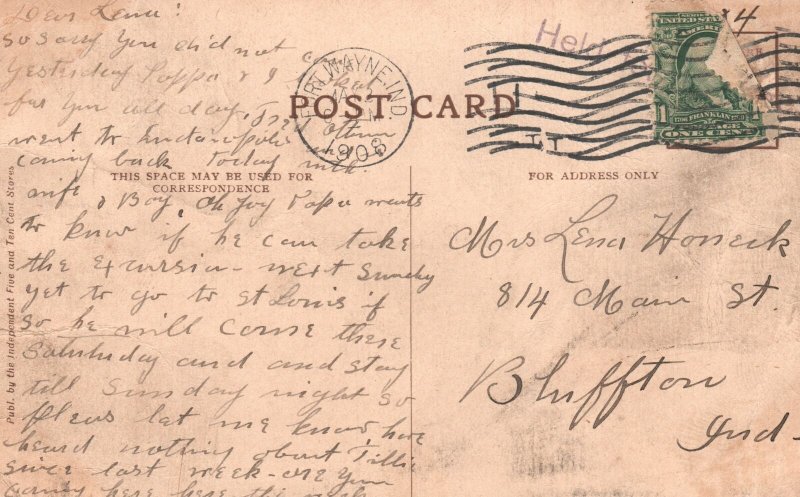 Dear Lena!
so sorry you did not
Yesterday Poppa & I
for you all day, Fred
went to Indianapolis Ottum
comg back Today with
wife & Boy Oh Joy Papa wants
to know if he can take
the Excursion - next Sunday
yet to go to St Louis if
so he will come there
Satuhday and and stay
till Sunday night so
pleas let me know have
heard nothing about Tillie
since last week - are you
comg here here the
POST CARD
THIS SPACE MAY BE USED FOR
CORRESPONDENCE
FOR ADDRESS ONLY
Publ. by the Independent Five and Ten Cent Stores
FORT WAYNE, IND.
1908
Held
4
UNITED STATES
1706 FRANKLIN
1
ONE CENT
Mrs Lena Honeck
814 Main St.
Bluffton
Ind-